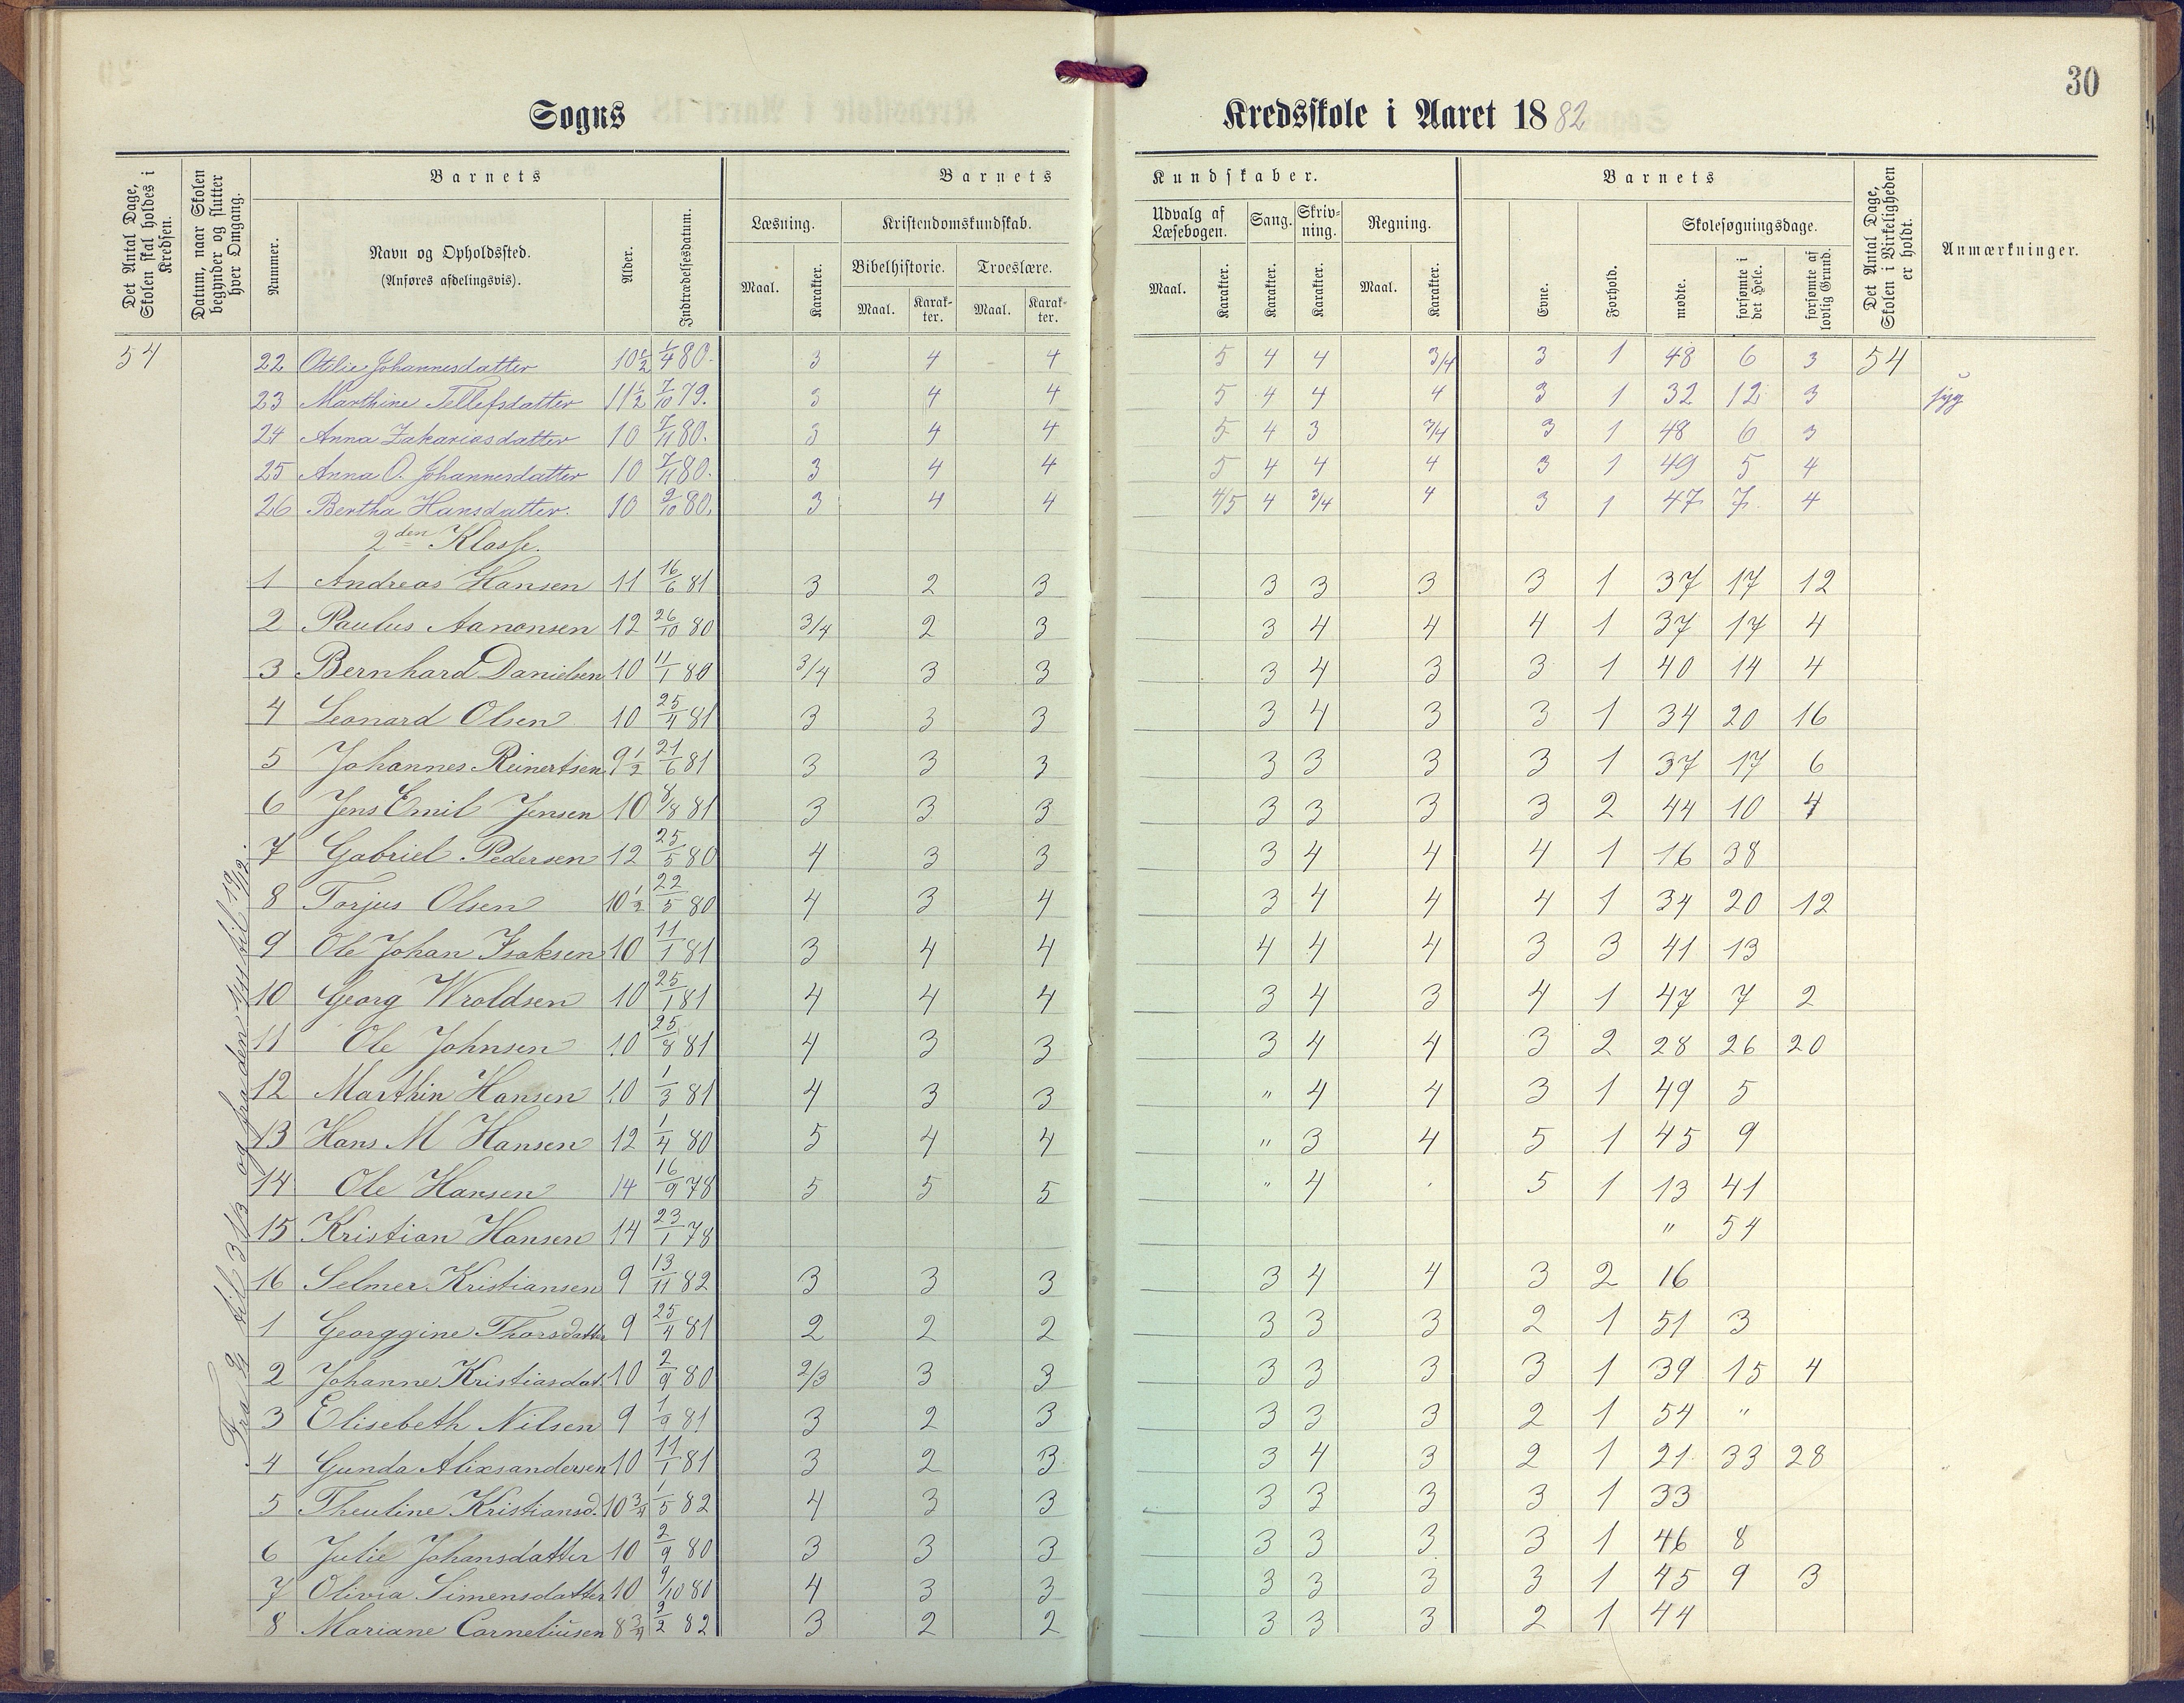 30
Sogns Kredsskole i Aaret 1882
Det Antal Dage, Skolen skal holdes i Kredsen.
Datum, naar Skolen begynder og slutter hver Omgang.
Barnets
Nummer.
Navn og Opholdssted.
(Anføres afdelingsvis).
Alder.
Indtrædelsesdatum.
Barnets Kundskaber.
Læsning.
Maal. Karakter.
Kristendomskundskab.
Bibelhistorie.
Maal. Karak-ter.
Troeslære.
Maal. Karak-ter.
Udvalg af Læsebogen.
Maal. Karakter.
Sang.
Karakter.
Skriv-ning.
Karakter.
Regning.
Maal. Karakter.
Barnets
Evne.
Forhold.
Skolesøgningsdage.
mødte.
forsømte i det Hele.
forsømte af lovlig Grund.
Det Antal Dage, Skolen i Virkeligheden er holdt.
Anmærkninger.
54 22 Otelie Johannesdatter 10½ 1/4 80. 3 4 4 5 4 4 3/4 3 1 48 6 3 54
23 Marthine Tellefsdatter 11½ 7/10 79. 3 4 4 5 4 4 4 3 1 32 12 3 syg
24 Anna Zakariasdatter 10 7/11 80. 3 4 4 5 4 3 3/4 3 1 48 6 3
25 Anna O. Johannesdatter 10 7/11 80. 3 4 4 5 4 4 4 3 1 49 5 4
26 Bertha Hansdatter. 10 9/10 80. 3 4 4 4/5 4 3/4 4 3 1 47 7 4
2den Klasse.
1 Andreas Hansen 11 16/6 81 3 2 3 3 3 3 3 1 37 17 12
2 Paulus Aanonsen 12 26/10 80 3/4 2 3 3 4 4 4 1 37 17 4
3 Bernhard Danielsen 10 11/1 80 3/4 3 3 3 4 3 3 1 40 14 4
4 Leonard Olsen 10 25/4 81 3 3 3 3 4 3 3 1 34 20 16
5 Johannes Reinertsen 9½ 21/6 81 3 3 3 3 3 3 3 1 37 17 6
6 Jens Emil Jensen 10 8/8 81 3 3 3 3 3 3 3 2 44 10 4
7 Gabriel Pedersen 12 25/5 80 4 3 3 3 4 4 4 1 16 38
8 Torjus Olsen 10½ 22/5 80 4 3 4 3 4 4 4 1 34 20 12
9 Ole Johan Isaksen 10 11/1 81 3 4 4 4 4 4 3 3 41 13
10 Georg Wroldsen 10 25/1 81 4 4 4 3 4 3 4 1 47 7 2
11 Ole Johnsen 10 25/8 81 4 3 3 3 4 4 3 2 28 26 20
12 Marthin Hansen 10 1/3 81 4 3 3 " 4 4 3 1 49 5
13 Hans M Hansen 12 1/4 80 5 4 4 " 3 4 5 1 45 9
14 Ole Hansen 14 16/9 78 5 5 5 " 4 5 1 13 41
15 Kristian Hansen 14 23/1 78 " 54
16 Selmer Kristiansen 9 13/11 82 3 3 3 3 4 4 3 2 16
1 Georggine Thorsdatter 9 25/4 81 2 2 2 3 3 3 2 1 51 3
2 Johanne Kristiasdat 10 2/9 80 2/3 3 3 3 3 3 3 1 39 15 4
3 Elisebeth Nilsen 9 1/9 81 3 2 3 3 3 3 2 1 54 "
4 Gunda Alixsandersen 10 11/1 81 3 2 3 3 4 3 2 1 21 33 28
5 Theuline Kristiansd. 10¾ 1/5 82 4 3 3 3 3 3 3 1 33
6 Julie Johansdatter 10 2/9 80 3 3 3 3 3 3 3 1 46 8
7 Olivia Simensdatter 10 9/10 80 4 3 3 3 3 3 3 1 45 9 3
8 Mariane Corneliusen 8¾ 2/2 82 3 2 2 3 3 3 2 1 44